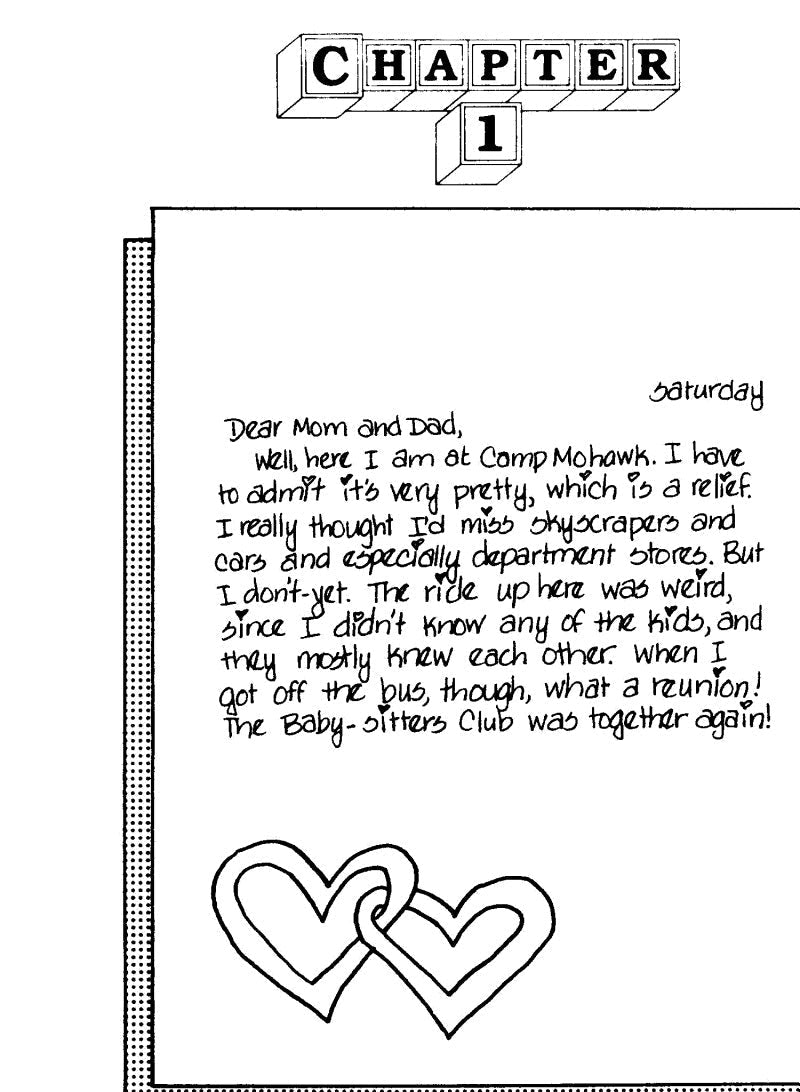 CHAPTER
1
Saturday
Dear Mom and Dad,
Well, here I am at Camp Mohawk. I have
to admit it's very pretty, which is a relief.
I really thought I'd miss skyscrapers and
cars and especially department stores. But
I don't-yet. The ride up here was weird,
since I didn't know any of the kids, and
they mostly knew each other. When I
got off the bus, though, what a reunion!
The Baby-sitters Club was together again!